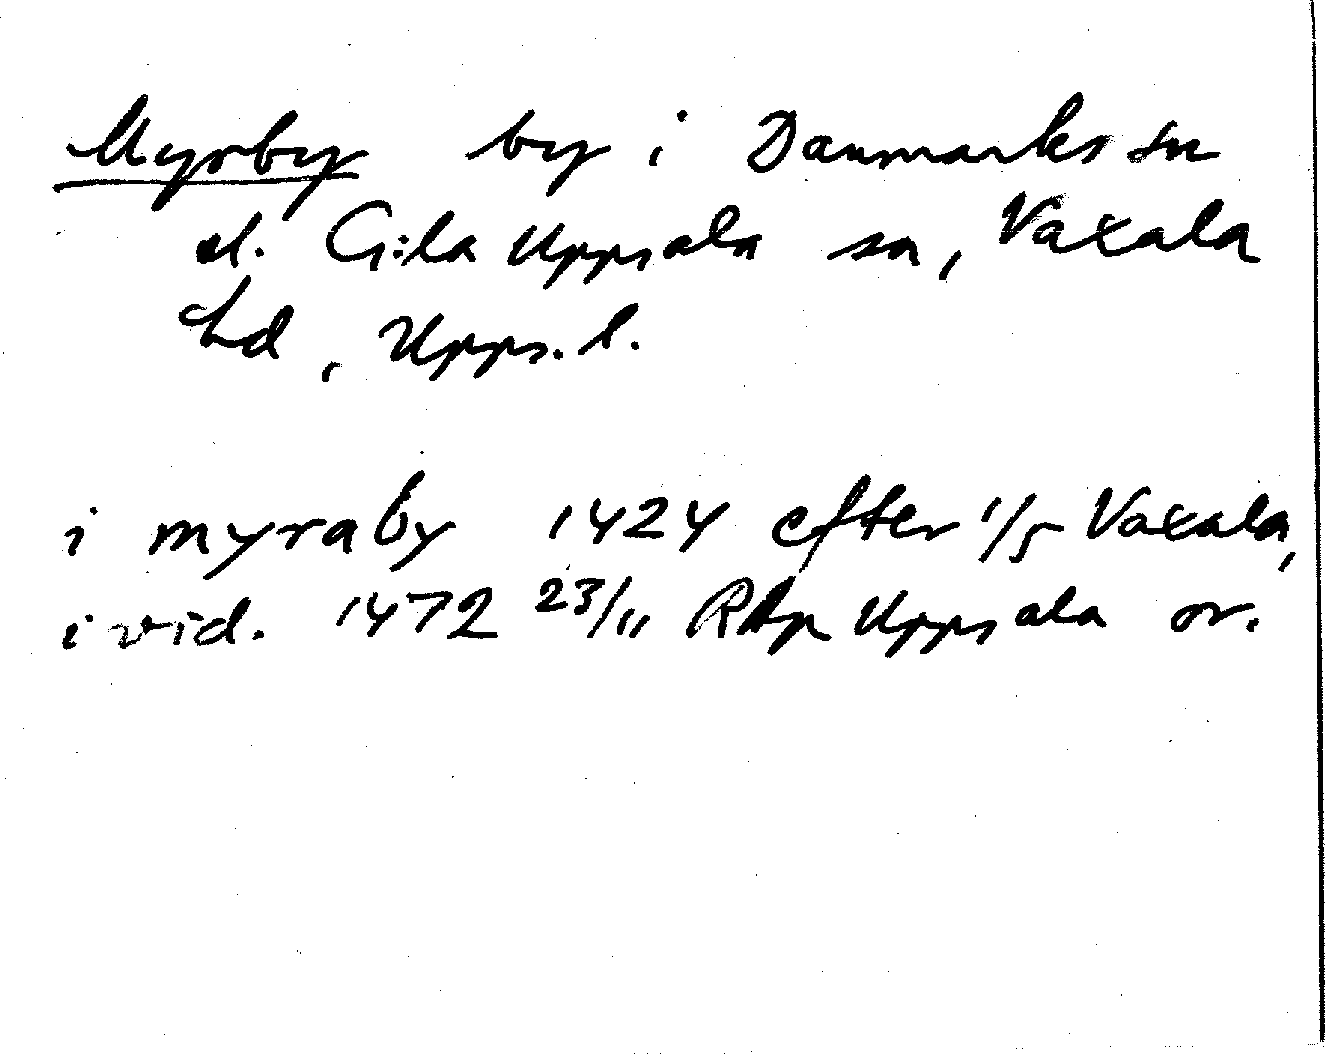 Myrby by i Danmarks sn
el. G:la Uppsala sn, Vaxala
hd, Upps. l.
i myraby 1424 efter 1/5 Vaxala,
i vid. 1472 23/11 RAp Uppsala or.